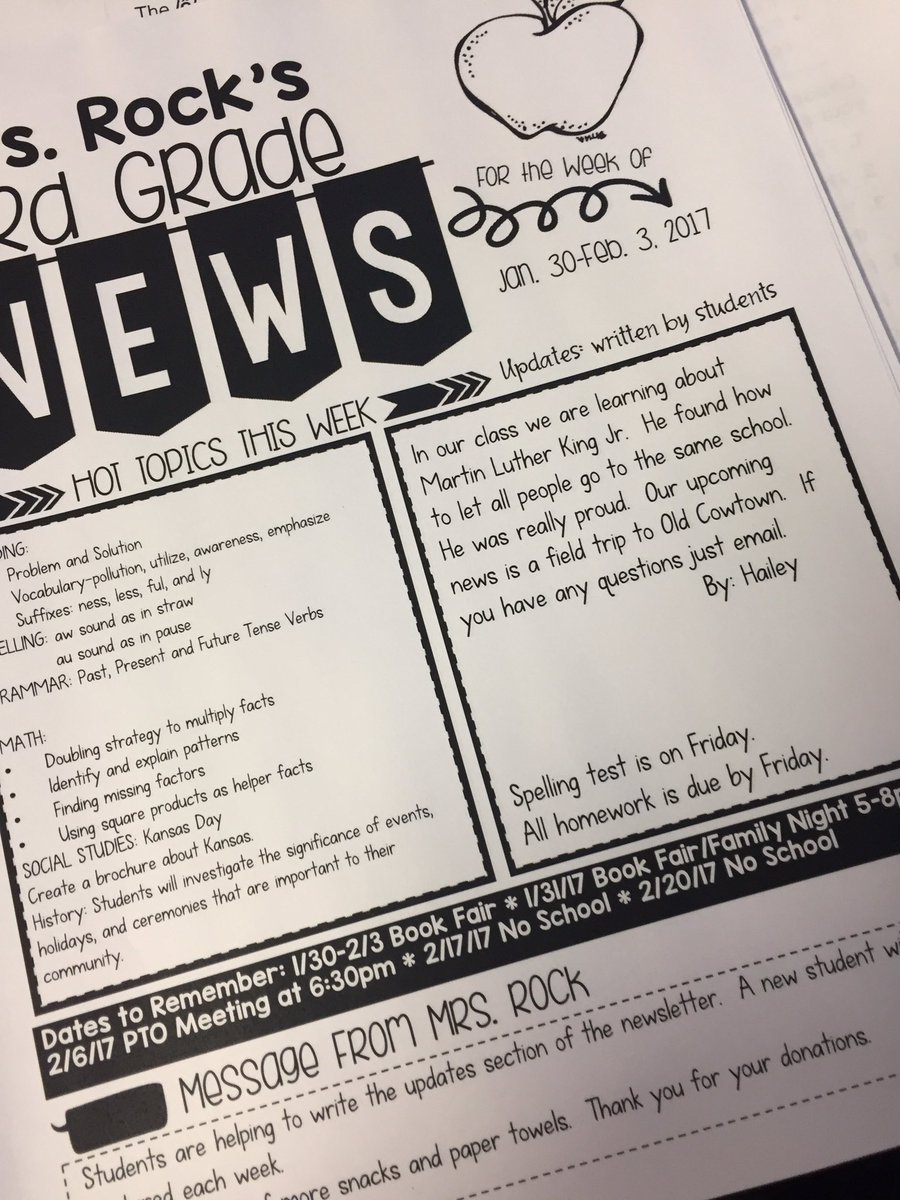 The
s. Rock's
rd Grade
NEWS
For the week of
Jan. 30-Feb. 3, 2017
HOT TOPICS THIS WEEK
Updates: written by students
Problem and Solution
Vocabulary-pollution, utilize, awareness, emphasize
Suffixes: ness, less, ful, and ly
ELLING: aw sound as in straw
au sound as in pause
RAMMAR: Past, Present and Future Tense Verbs
MATH:
• Doubling strategy to multiply facts
• Identify and explain patterns
• Finding missing factors
• Using square products as helper facts
SOCIAL STUDIES: Kansas Day
Create a brochure about Kansas.
History: Students will investigate the significance of events,
holidays, and ceremonies that are important to their
community.
In our class we are learning about
Martin Luther King Jr. He found how
to let all people go to the same school.
He was really proud. Our upcoming
news is a field trip to Old Cowtown. If
you have any questions just email.
By: Hailey
Spelling test is on Friday.
All homework is due by Friday.
Dates to Remember: 1/30-2/3 Book Fair * 1/31/17 Book Fair/Family Night 5-8p
2/6/17 PTO Meeting at 6:30pm * 2/17/17 No School * 2/20/17 No School
Message From Mrs. Rock
Students are helping to write the updates section of the newsletter. A new student wi
each week.
more snacks and paper towels. Thank you for your donations.